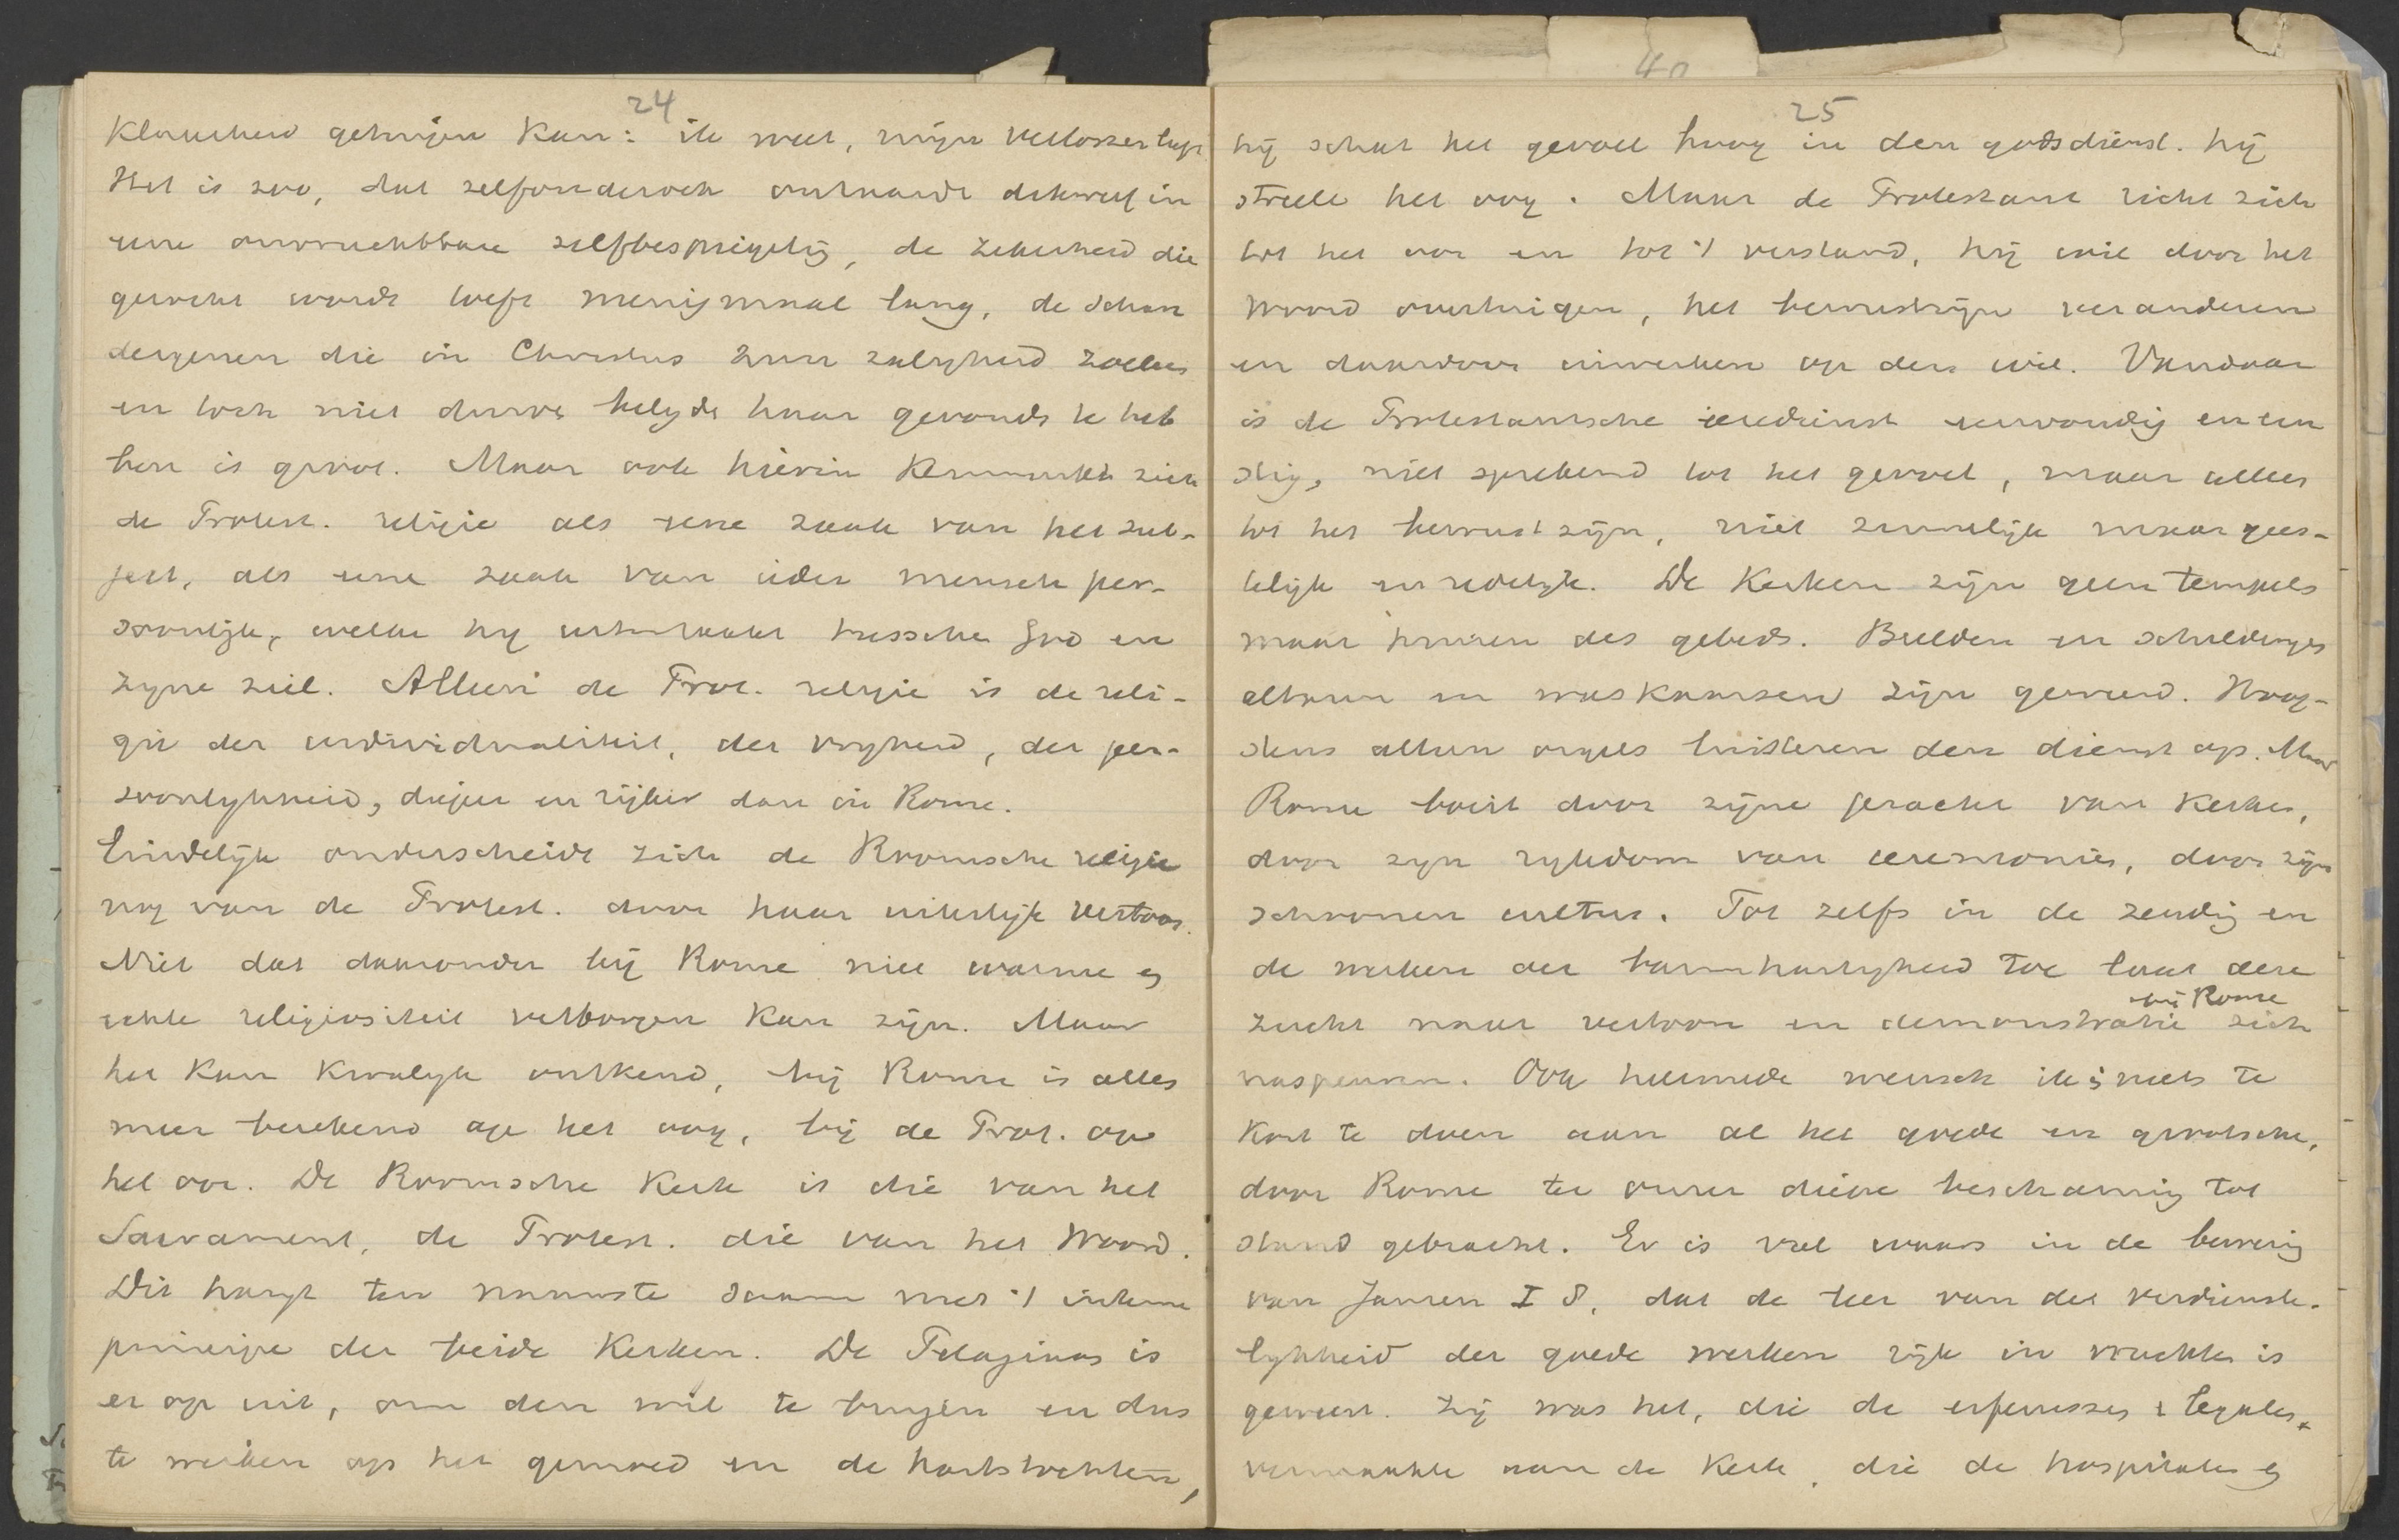 24
Klaarheid getuigen kan: ik weet, mijn Verlosser leeft
Het is zoo, dat zelfonderzoek ontaardt dikwerf in
eene onvruchtbare zelfbespiegelig, de zekerheid die
gezocht wordt toeft menigmaal lang, de schare
dergenen die in Christus hun zaligheid zoeken
en toch niet durve belijde haar gevonde te heb
ben is groot. Maar ook hierin kenmerkt zich
de Protest. religie als eene zaak van het sub-
ject, als eene zaak van ieder mensch per-
soonlijk, welke hij uitmaakt tussche God en
zijne ziel. Alleen de Prot. religie is de reli-
gie der individualiteit, der vrijheid, der per-
soonlijkheid, dieper en rijker dan in Rome.
Eindelijk onderscheidt zich de Roomsche religie
nog van de Protest. door haar uiterlijk vertoon.
Niet dat daaronder bij Rome niet warme en
echte religiositeit verborgen kan zijn. Maar
het kan kwalijk ontkend, bij Rome is alles
meer berekend op het oog, bij de Prot. op
het oor. De Roomsche Kerk is die van het
Sacrament, de Protest. die van het Woord.
Dit hangt ten nauwste saam met 't interne
principe der beide Kerken. De Pelagiaan is
er op uit, om den wil te buigen en dus
te werken op het gemoed en de hartstochten,
40
25
hij schat het gevoel hoog in den godsdienst. hij
streelt het oog. Maar de Protestant richt zich
tot het oor en tot 't verstand, hij wil door het
woord overtuigen, het bewustzijn veranderen
en daardoor inwerken op den wil. Vandaar
is de Protestantsche eeredienst eenvoudig en ern
stig, niet sprekend tot het gevoel, maar alleen
tot het bewustzijn, niet zinnelijk maar gees-
telijk en redelijk. De Kerken zijn geen tempels
maar huizen des gebeds. Beelden en schilderijen
altaren en waskaarsen zijn geweerd. Hoog-
stens alleen orgels luisteren den dienst op. Maar
Rome boeit door zijne pracht van Kerken,
door zijn rijkdom van ceremonies, door zijn
schoonen cultus. Tot zelfs in de zendig en
de werken der barmhartigheid toe laat deze
zucht naar vertoon en demonstratie bij Rome zich
naspeuren. Ook hiermede wensch ik niets te
kort te doen aan al het goede en grootsche,
door Rome ter onzer diepe beschaming tot
stand gebracht. Er is veel waars in de bewerig
van Jansen I 8, dat de leer van der verdienste-
lijkheid der goede werken rijk in vruchten is
geweest. Zij was het, die de erfenissen & legaten
vermaakte aan de Kerk, die de hospitalen en